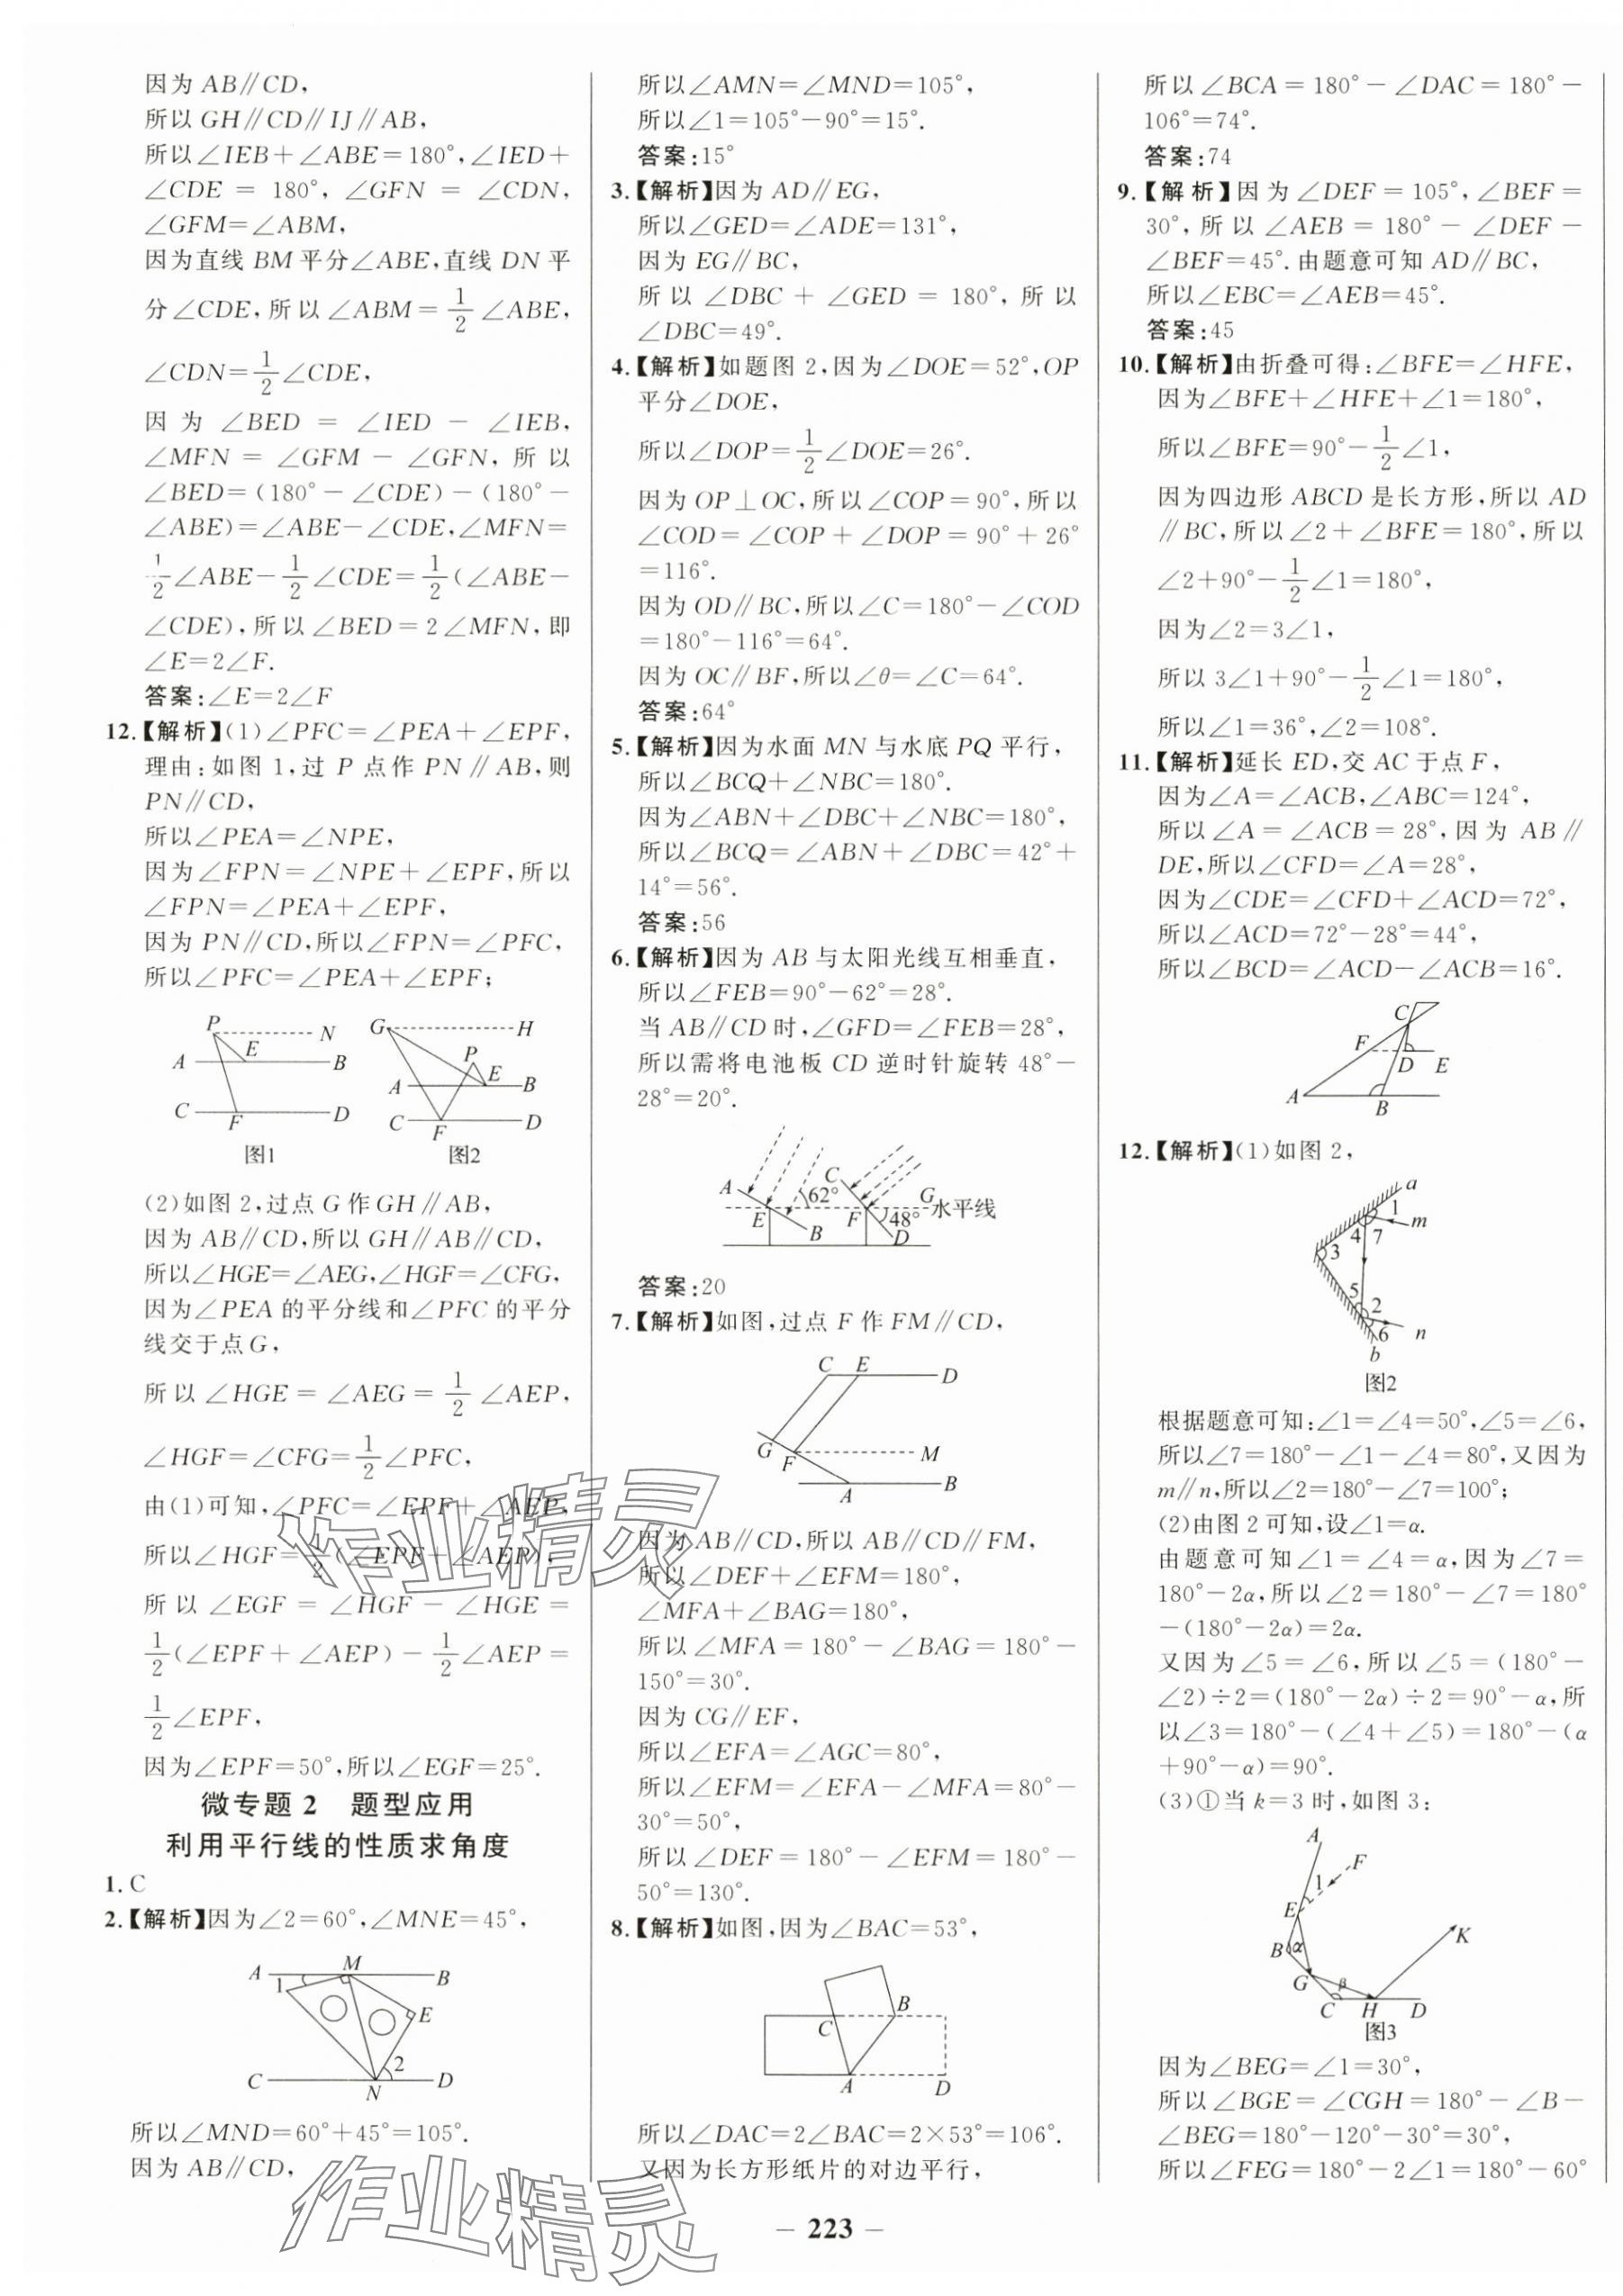 因为 AB∥CD,
所以 GH∥CD∥IJ∥AB,
所以∠IEB+∠ABE=180°,∠IED+
∠CDE = 180°, ∠GFN = ∠CDN,
∠GFM=∠ABM,
因为直线 BM 平分∠ABE,直线 DN 平
分∠CDE,所以∠ABM=1/2∠ABE,
∠CDN=1/2∠CDE,
因为 ∠BED = ∠IED − ∠IEB,
∠MFN = ∠GFM − ∠GFN, 所以
∠BED=(180°−∠CDE)−(180°−
∠ABE)=∠ABE−∠CDE,∠MFN=
1/2∠ABE−1/2∠CDE=1/2(∠ABE−
∠CDE),所以∠BED=2∠MFN,即
∠E=2∠F.
答案:∠E=2∠F
12.【解析】(1)∠PFC=∠PEA+∠EPF,
理由:如图 1,过 P 点作 PN∥AB,则
PN∥CD,
所以∠PEA=∠NPE,
因为∠FPN=∠NPE+∠EPF,所以
∠FPN=∠PEA+∠EPF,
因为 PN∥CD,所以∠FPN=∠PFC,
所以∠PFC=∠PEA+∠EPF;
P N E A B C F D
图1
G H P E A B C F D
图2
(2)如图 2,过点 G 作 GH∥AB,
因为 AB∥CD,所以 GH∥AB∥CD,
所以∠HGE=∠AEG,∠HGF=∠CFG,
因为∠PEA 的平分线和∠PFC 的平分
线交于点 G,
所以 ∠HGE = ∠AEG = 1/2∠AEP,
∠HGF=∠CFG=1/2∠PFC,
由(1)可知,∠PFC=∠EPF+∠AEP,
所以∠HGF=1/2(∠EPF+∠AEP),
所以 ∠EGF = ∠HGF − ∠HGE =
1/2(∠EPF+∠AEP)−1/2∠AEP=
1/2∠EPF,
因为∠EPF=50°,所以∠EGF=25°.
微专题 2 题型应用
利用平行线的性质求角度
1.C
2.【解析】因为∠2=60°,∠MNE=45°,
A M B 1 E 2 C N D
所以∠MND=60°+45°=105°.
因为 AB∥CD,
所以∠AMN=∠MND=105°,
所以∠1=105°−90°=15°.
答案:15°
3.【解析】因为 AD∥EG,
所以∠GED=∠ADE=131°,
因为 EG∥BC,
所以 ∠DBC + ∠GED = 180°, 所以
∠DBC=49°.
4.【解析】如题图 2,因为∠DOE=52°,OP
平分∠DOE,
所以∠DOP=1/2∠DOE=26°.
因为 OP⊥OC,所以∠COP=90°,所以
∠COD=∠COP+∠DOP=90°+26°
=116°.
因为 OD∥BC,所以∠C=180°−∠COD
=180°−116°=64°.
因为 OC∥BF,所以∠θ=∠C=64°.
答案:64°
5.【解析】因为水面 MN 与水底 PQ 平行,
所以∠BCQ+∠NBC=180°.
因为∠ABN+∠DBC+∠NBC=180°,
所以∠BCQ=∠ABN+∠DBC=42°+
14°=56°.
答案:56
6.【解析】因为 AB 与太阳光线互相垂直,
所以∠FEB=90°−62°=28°.
当 AB∥CD 时,∠GFD=∠FEB=28°,
所以需将电池板 CD 逆时针旋转 48°−
28°=20°.
A E B 62° C F 48° D G 水平线
答案:20
7.【解析】如图,过点 F 作 FM∥CD,
C E D G F M A B
因为 AB∥CD,所以 AB∥CD∥FM,
所以∠DEF+∠EFM=180°,
∠MFA+∠BAG=180°,
所以 ∠MFA = 180° − ∠BAG = 180°−
150°=30°.
因为 CG∥EF,
所以∠EFA=∠AGC=80°,
所以∠EFM=∠EFA−∠MFA=80°−
30°=50°,
所以∠DEF=180°−∠EFM=180°−
50°=130°.
8.【解析】如图,因为∠BAC=53°,
C B A D
所以∠DAC=2∠BAC=2×53°=106°.
又因为长方形纸片的对边平行,
所以 ∠BCA = 180° − ∠DAC = 180°−
106°=74°.
答案:74
9.【解析】因为∠DEF=105°,∠BEF=
30°,所以 ∠AEB = 180° − ∠DEF −
∠BEF=45°.由题意可知 AD∥BC,
所以∠EBC=∠AEB=45°.
答案:45
10.【解析】由折叠可得:∠BFE=∠HFE,
因为∠BFE+∠HFE+∠1=180°,
所以∠BFE=90°−1/2∠1,
因为四边形 ABCD 是长方形,所以 AD
∥BC,所以∠2+∠BFE=180°,所以
∠2+90°−1/2∠1=180°,
因为∠2=3∠1,
所以 3∠1+90°−1/2∠1=180°,
所以∠1=36°,∠2=108°.
11.【解析】延长 ED,交 AC 于点 F,
因为∠A=∠ACB,∠ABC=124°,
所以∠A=∠ACB=28°,因为 AB∥
DE,所以∠CFD=∠A=28°,
因为∠CDE=∠CFD+∠ACD=72°,
所以∠ACD=72°−28°=44°,
所以∠BCD=∠ACD−∠ACB=16°.
C F D E A B
12.【解析】(1)如图 2,
a 1 m 4 7 3 5 2 6 n b
图2
根据题意可知:∠1=∠4=50°,∠5=∠6,
所以∠7=180°−∠1−∠4=80°,又因为
m∥n,所以∠2=180°−∠7=100°;
(2)由图 2 可知,设∠1=α.
由题意可知∠1=∠4=α,因为∠7=
180°−2α,所以∠2=180°−∠7=180°
−(180°−2α)=2α.
又因为∠5=∠6,所以∠5=(180°−
∠2)÷2=(180°−2α)÷2=90°−α,所
以∠3=180°−(∠4+∠5)=180°−(α
+90°−α)=90°.
(3)①当 k=3 时,如图 3:
A F 1 E B α G β C H D K
图3
因为∠BEG=∠1=30°,
所以∠BGE=∠CGH=180°−∠B−
∠BEG=180°−120°−30°=30°,
所以∠FEG=180°−2∠1=180°−60°
作业精灵
作业精灵
— 223 —